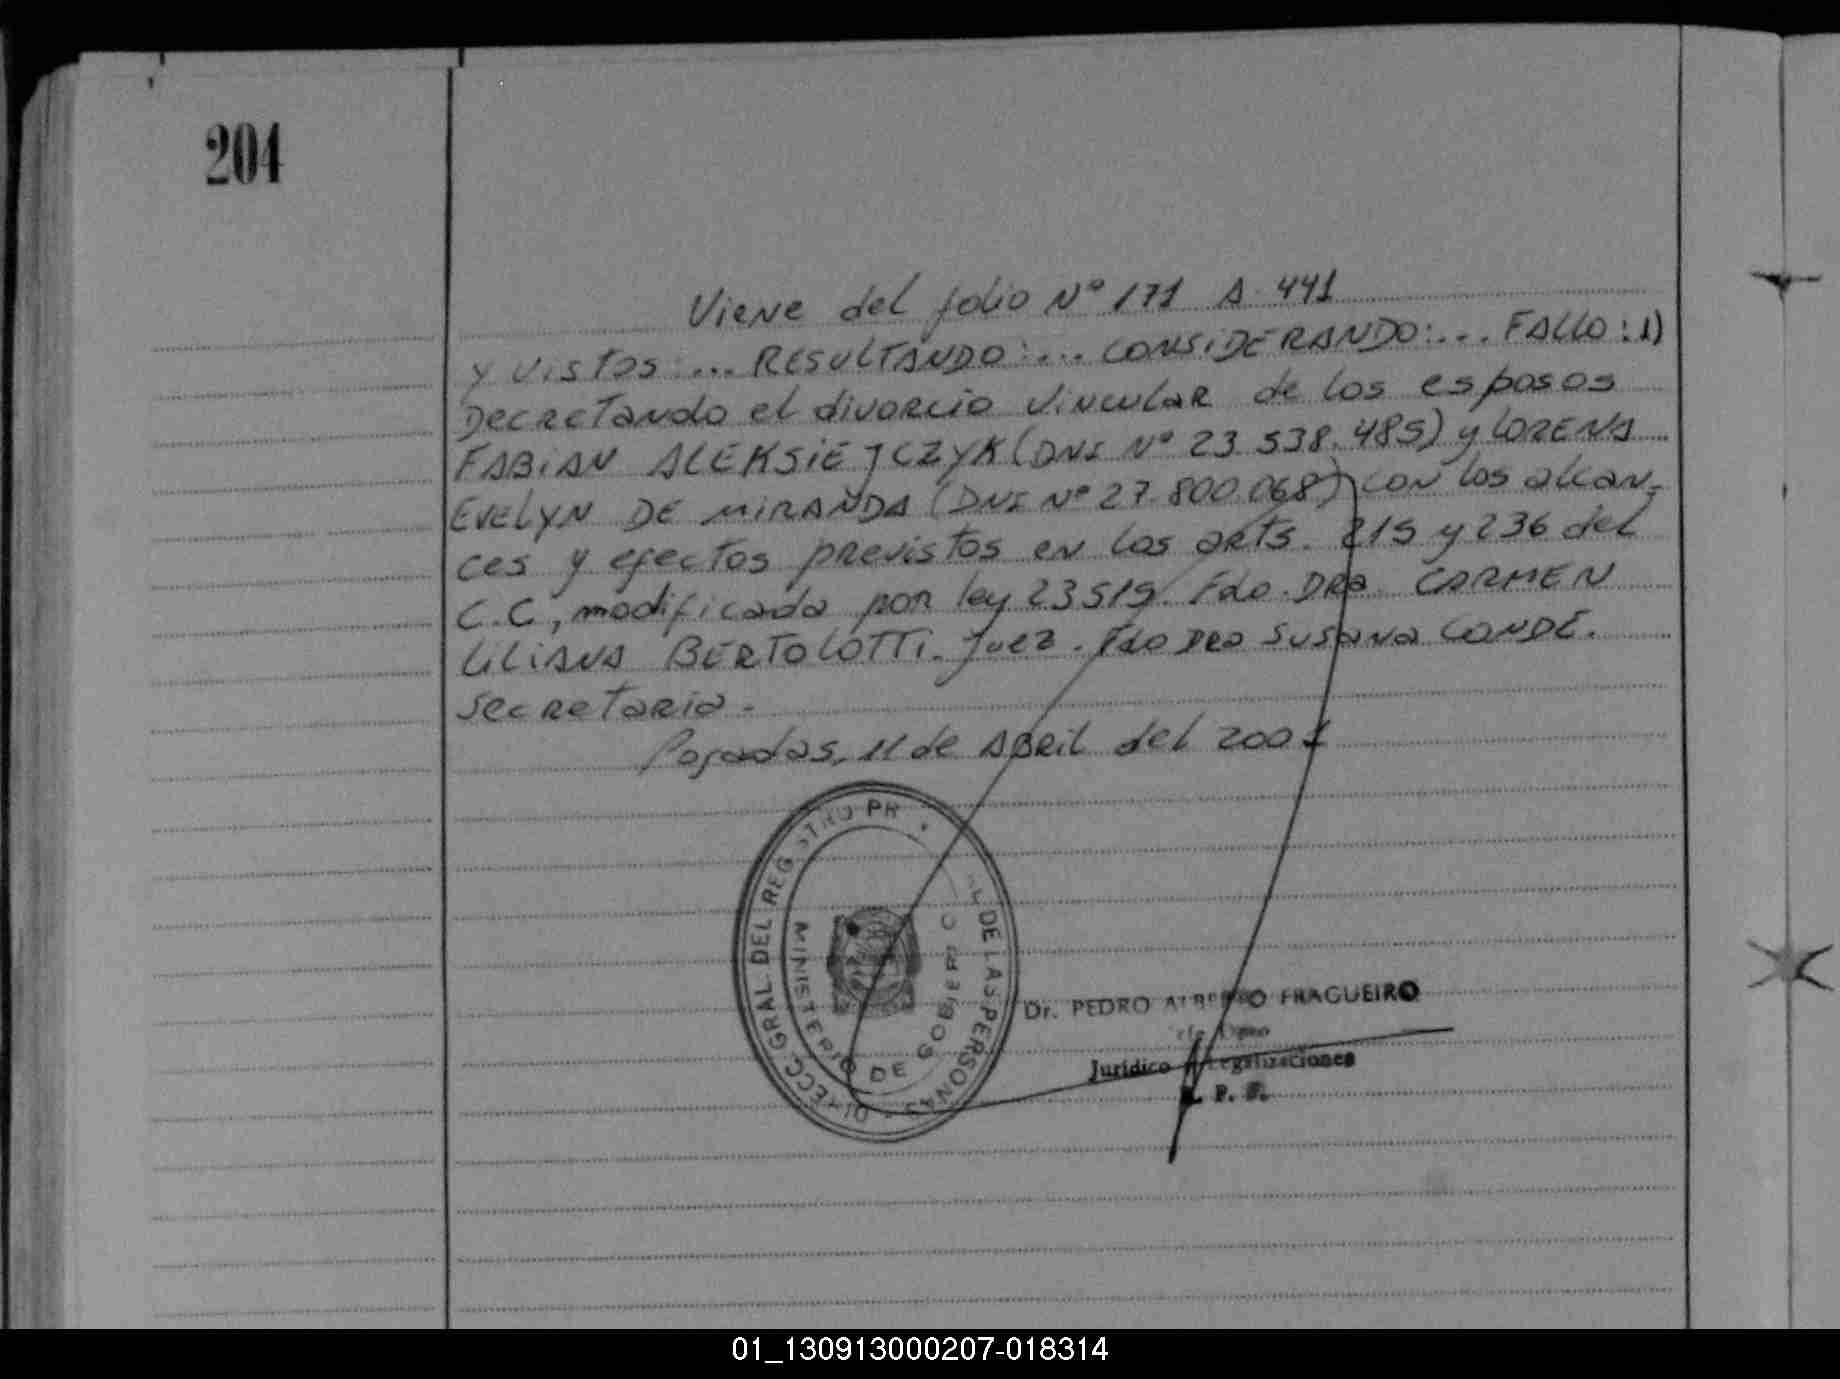 204
Viene del folio Nº 171 A 441
y vistos:... RESULTANDO:... CONSIDERANDO:... FALLO: 1)
Decretando el divorcio vincular de los esposos
FABIAN ALEKSIEJCZYK (DNI Nº 23.538.485) y LORENA
EVELYN DE MIRANDA (DNI Nº 27.800.068) con los alcan-
ces y efectos previstos en los arts. 215 y 236 del
C.C., modificada por ley 23515. Fdo. DRA CARMEN
LILIANA BERTOLOTTI. Juez. Fdo DRA SUSANA CONDE.
Secretaria.
Posadas, 11 de ABRIL del 2001
DIRECC. GRAL. DEL REGISTRO PR DE LAS PERSONAS
MINISTERIO DE GOBIERNO
Dr. PEDRO ALBERTO FRAGUEIRO
Jurídico Legalizaciones
R. P. P.
01_130913000207-018314